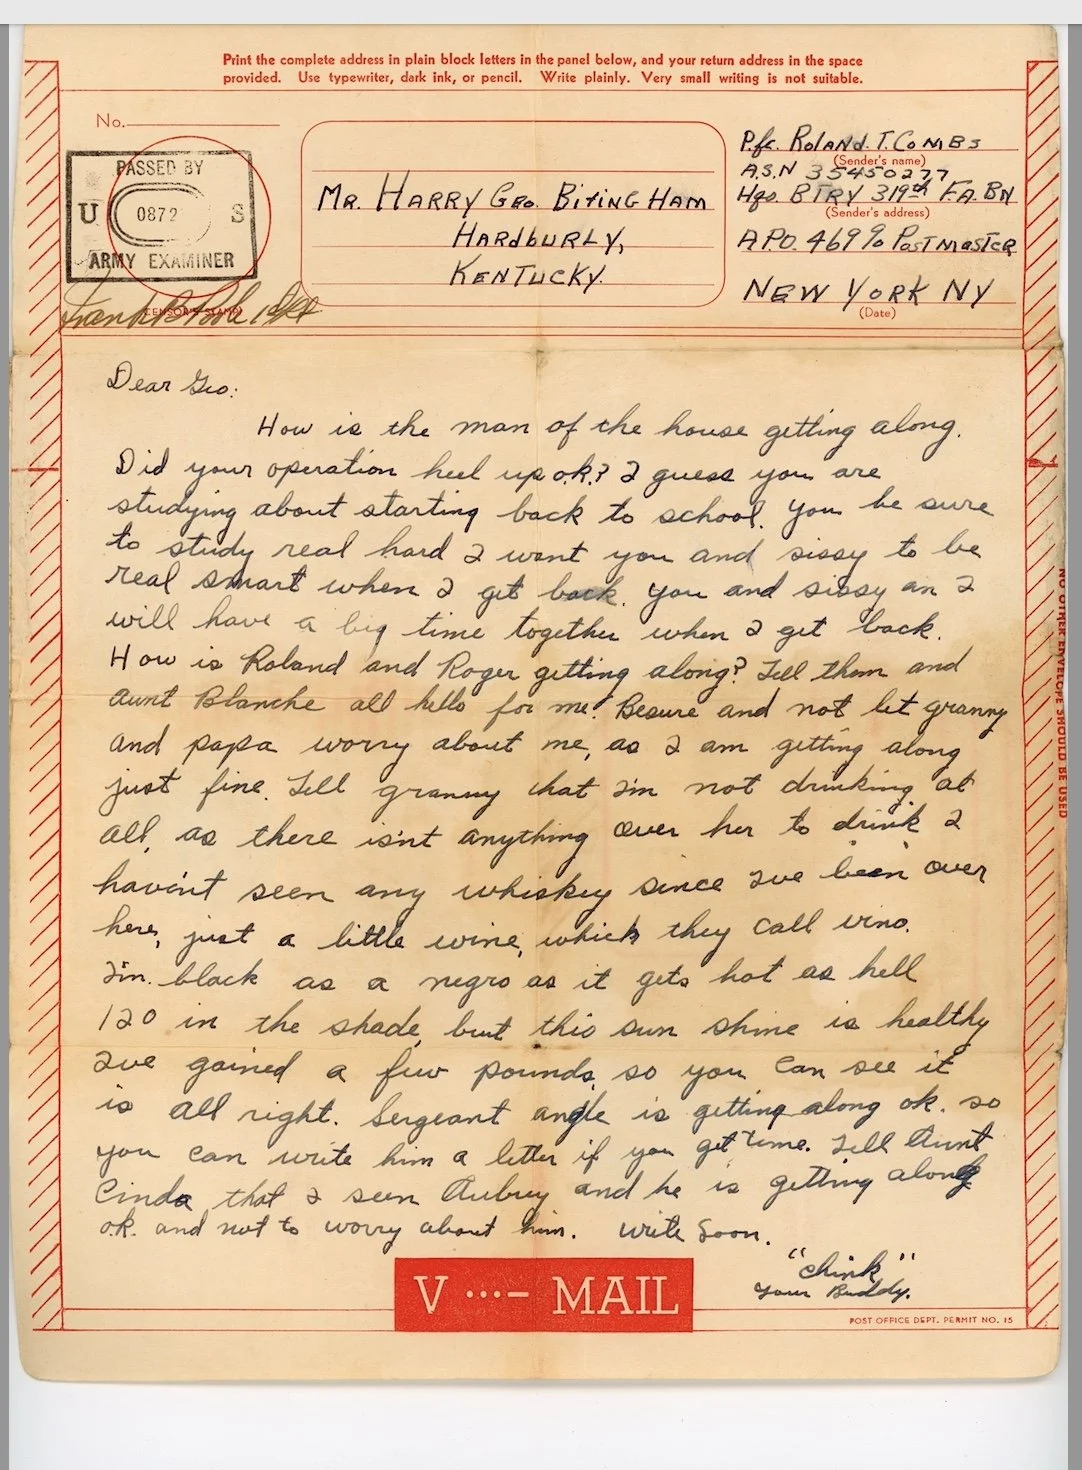 Print the complete address in plain block letters in the panel below, and your return address in the space
provided. Use typewriter, dark ink, or pencil. Write plainly. Very small writing is not suitable.
No.
PASSED BY
U 0872 S
ARMY EXAMINER
CENSOR'S STAMP
Mr. Harry Geo. Biting Ham
Hardburly,
Kentucky.
Pfc. Roland. T. Combs
(Sender's name)
A.S.N 35450277
Hqs. BTRY 319th F.A. BN
(Sender's address)
APO. 469 % Postmaster
New York NY
(Date)
Dear Geo:
How is the man of the house getting along.
Did your operation heel up ok.? I guess you are
studying about starting back to school. You be sure
to study real hard I want you and sissy to be
real smart when I get back. You and sissy an I
will have a big time together when I get back.
How is Roland and Roger getting along? Tell them and
aunt Blanche all hello for me. Besure and not let granny
and papa worry about me, as I am getting along
just fine. Tell granny that I'm not drinking at
all, as there isn't anything over her to drink I
havin't seen any whiskey since I've been over
here, just a little wine, which they call vino.
I'm. black as a negro as it gets hot as hell
120 in the shade, but this sun shine is healthy
I've gained a few pounds, so you can see it
is all right. Sergeant angle is getting along ok. so
you can write him a letter if you get time. Tell Aunt
Cinda that I seen Aubrey and he is getting along
o.k. and not to worry about him. Write Soon.
"Chink"
Your Buddy.
V ...– MAIL
POST OFFICE DEPT. PERMIT NO. 15
NO OTHER ENVELOPE SHOULD BE USED